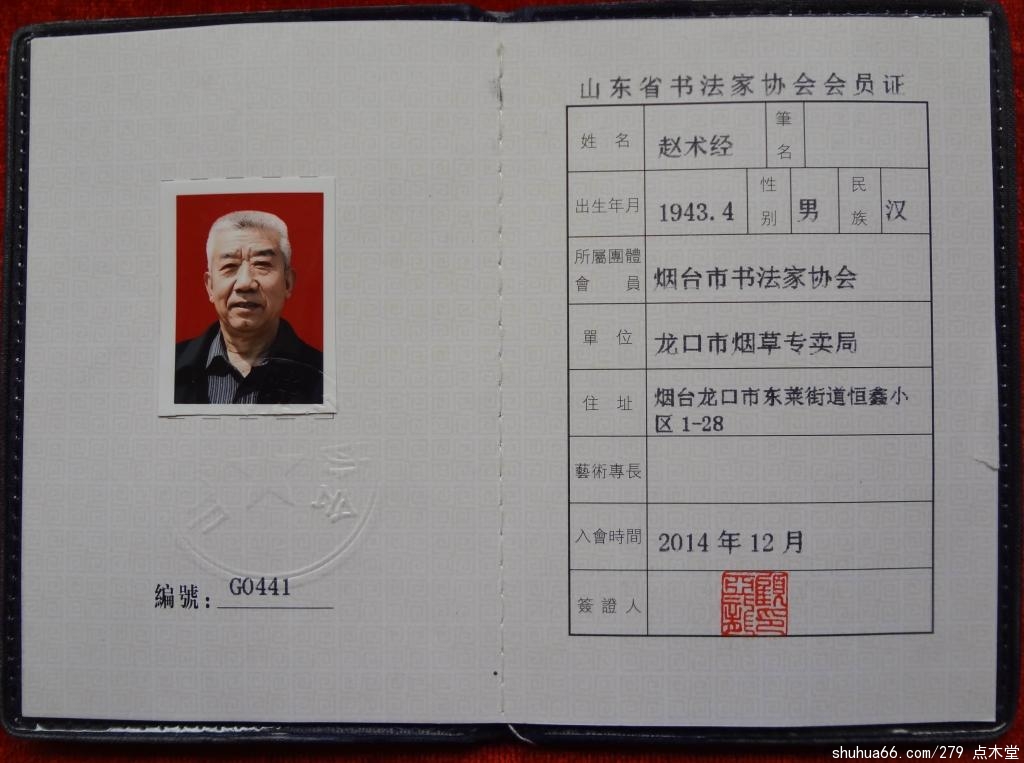 编號：G0441
山东省书法家协会会员证
姓名 赵术经 筆名
出生年月 1943.4 性别 男 民族 汉
所屬團體會員 烟台市书法家协会
單位 龙口市烟草专卖局
住址 烟台龙口市东莱街道恒鑫小
区 1-28
藝術專長
入會時間 2014 年 12 月
簽證人
shuhua66.com/279 点木堂